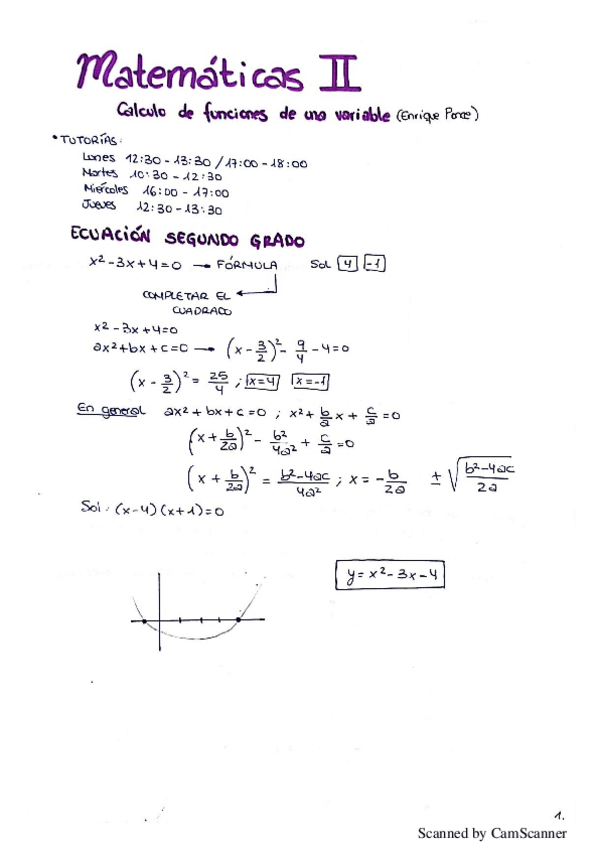 Matemáticas II
Calculo de funciones de una variable (Enrique Ponce)
• TUTORÍAS:
Lunes 12:30 - 13:30 / 17:00 - 18:00
Martes 10:30 - 12:30
Miércoles 16:00 - 17:00
Jueves 12:30 - 13:30
ECUACIÓN SEGUNDO GRADO
x² - 3x + 4 = 0 → FÓRMULA Sol 4 -1
COMPLETAR EL
CUADRADO
x² - 3x + 4 = 0
ax² + bx + c = 0 → (x - 3/2)² - 9/4 - 4 = 0
(x - 3/2)² = 25/4 ; x = 4 x = -1
En general ax² + bx + c = 0 ; x² + b/a x + c/a = 0
(x + b/2a)² - b²/4a² + c/a = 0
(x + b/2a)² = b² - 4ac/4a² ; x = - b/2a ± √(b² - 4ac/2a)
Sol: (x - 4) (x + 1) = 0
y = x² - 3x - 4
1.
Scanned by CamScanner